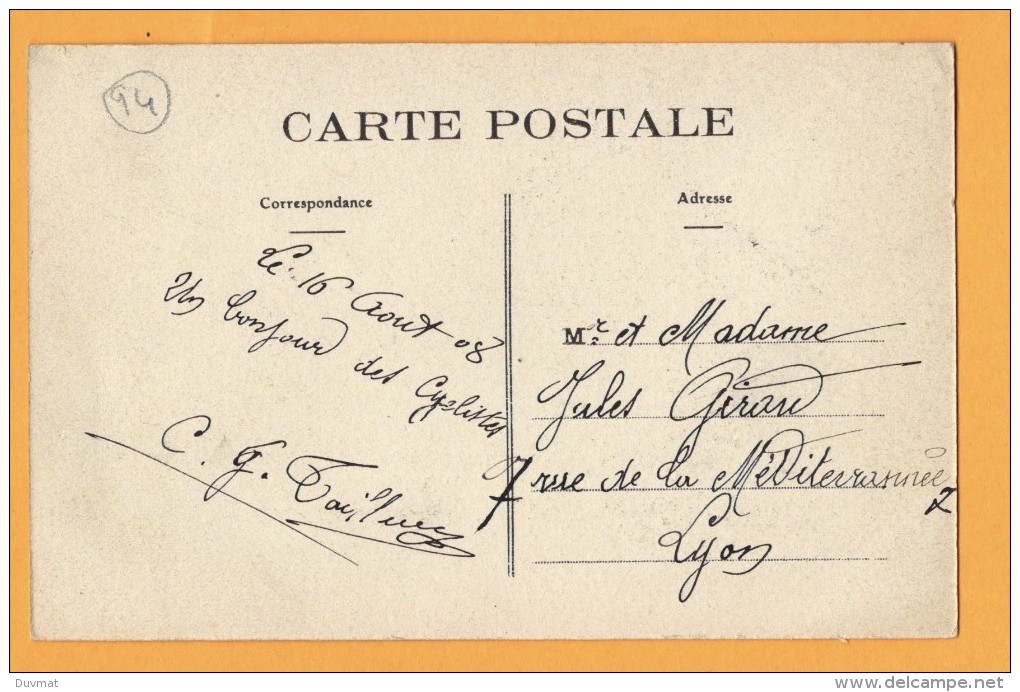 94
CARTE POSTALE
Correspondance
Le 16 Aout 08
Un bonjour des Cyclistes
C. G.
Adresse
Mr. et Madame
Jules Giraud
7 rue de la Méditerrannée
Lyon
Duvmat
delcampe.net